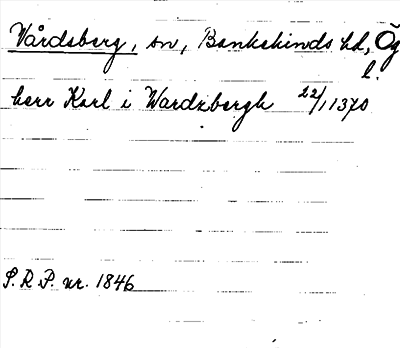 Vårdsberg, sn, Bankekinds hd, Ög
l.
herr Karl i Wardzbergh 22/1 1370
S.R.P. nr. 1846